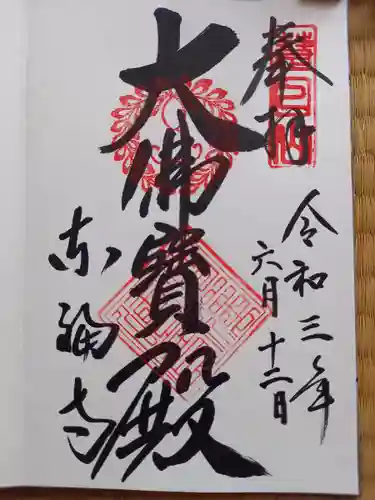 奉拝
令和三年
六月十二日
大佛寳殿
東福寺